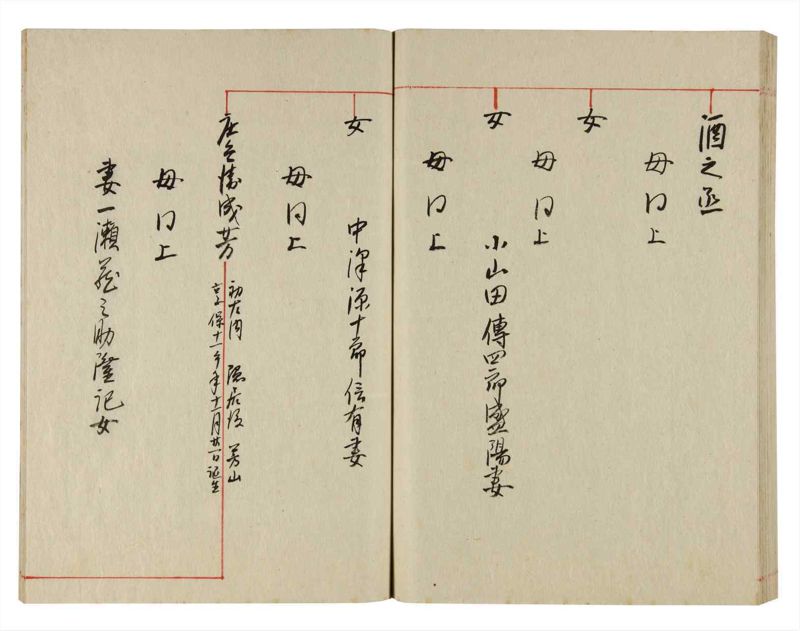 酒之丞
母同上
女
母同上
女
小山田傳四郎盛陽妻
母同上
女
中澤源十郎信有妻
母同上
芳
初左内 隠居後 芳山
享保十一年 十一月廿一日誕生
母同上
妻一瀬 之助隆記女